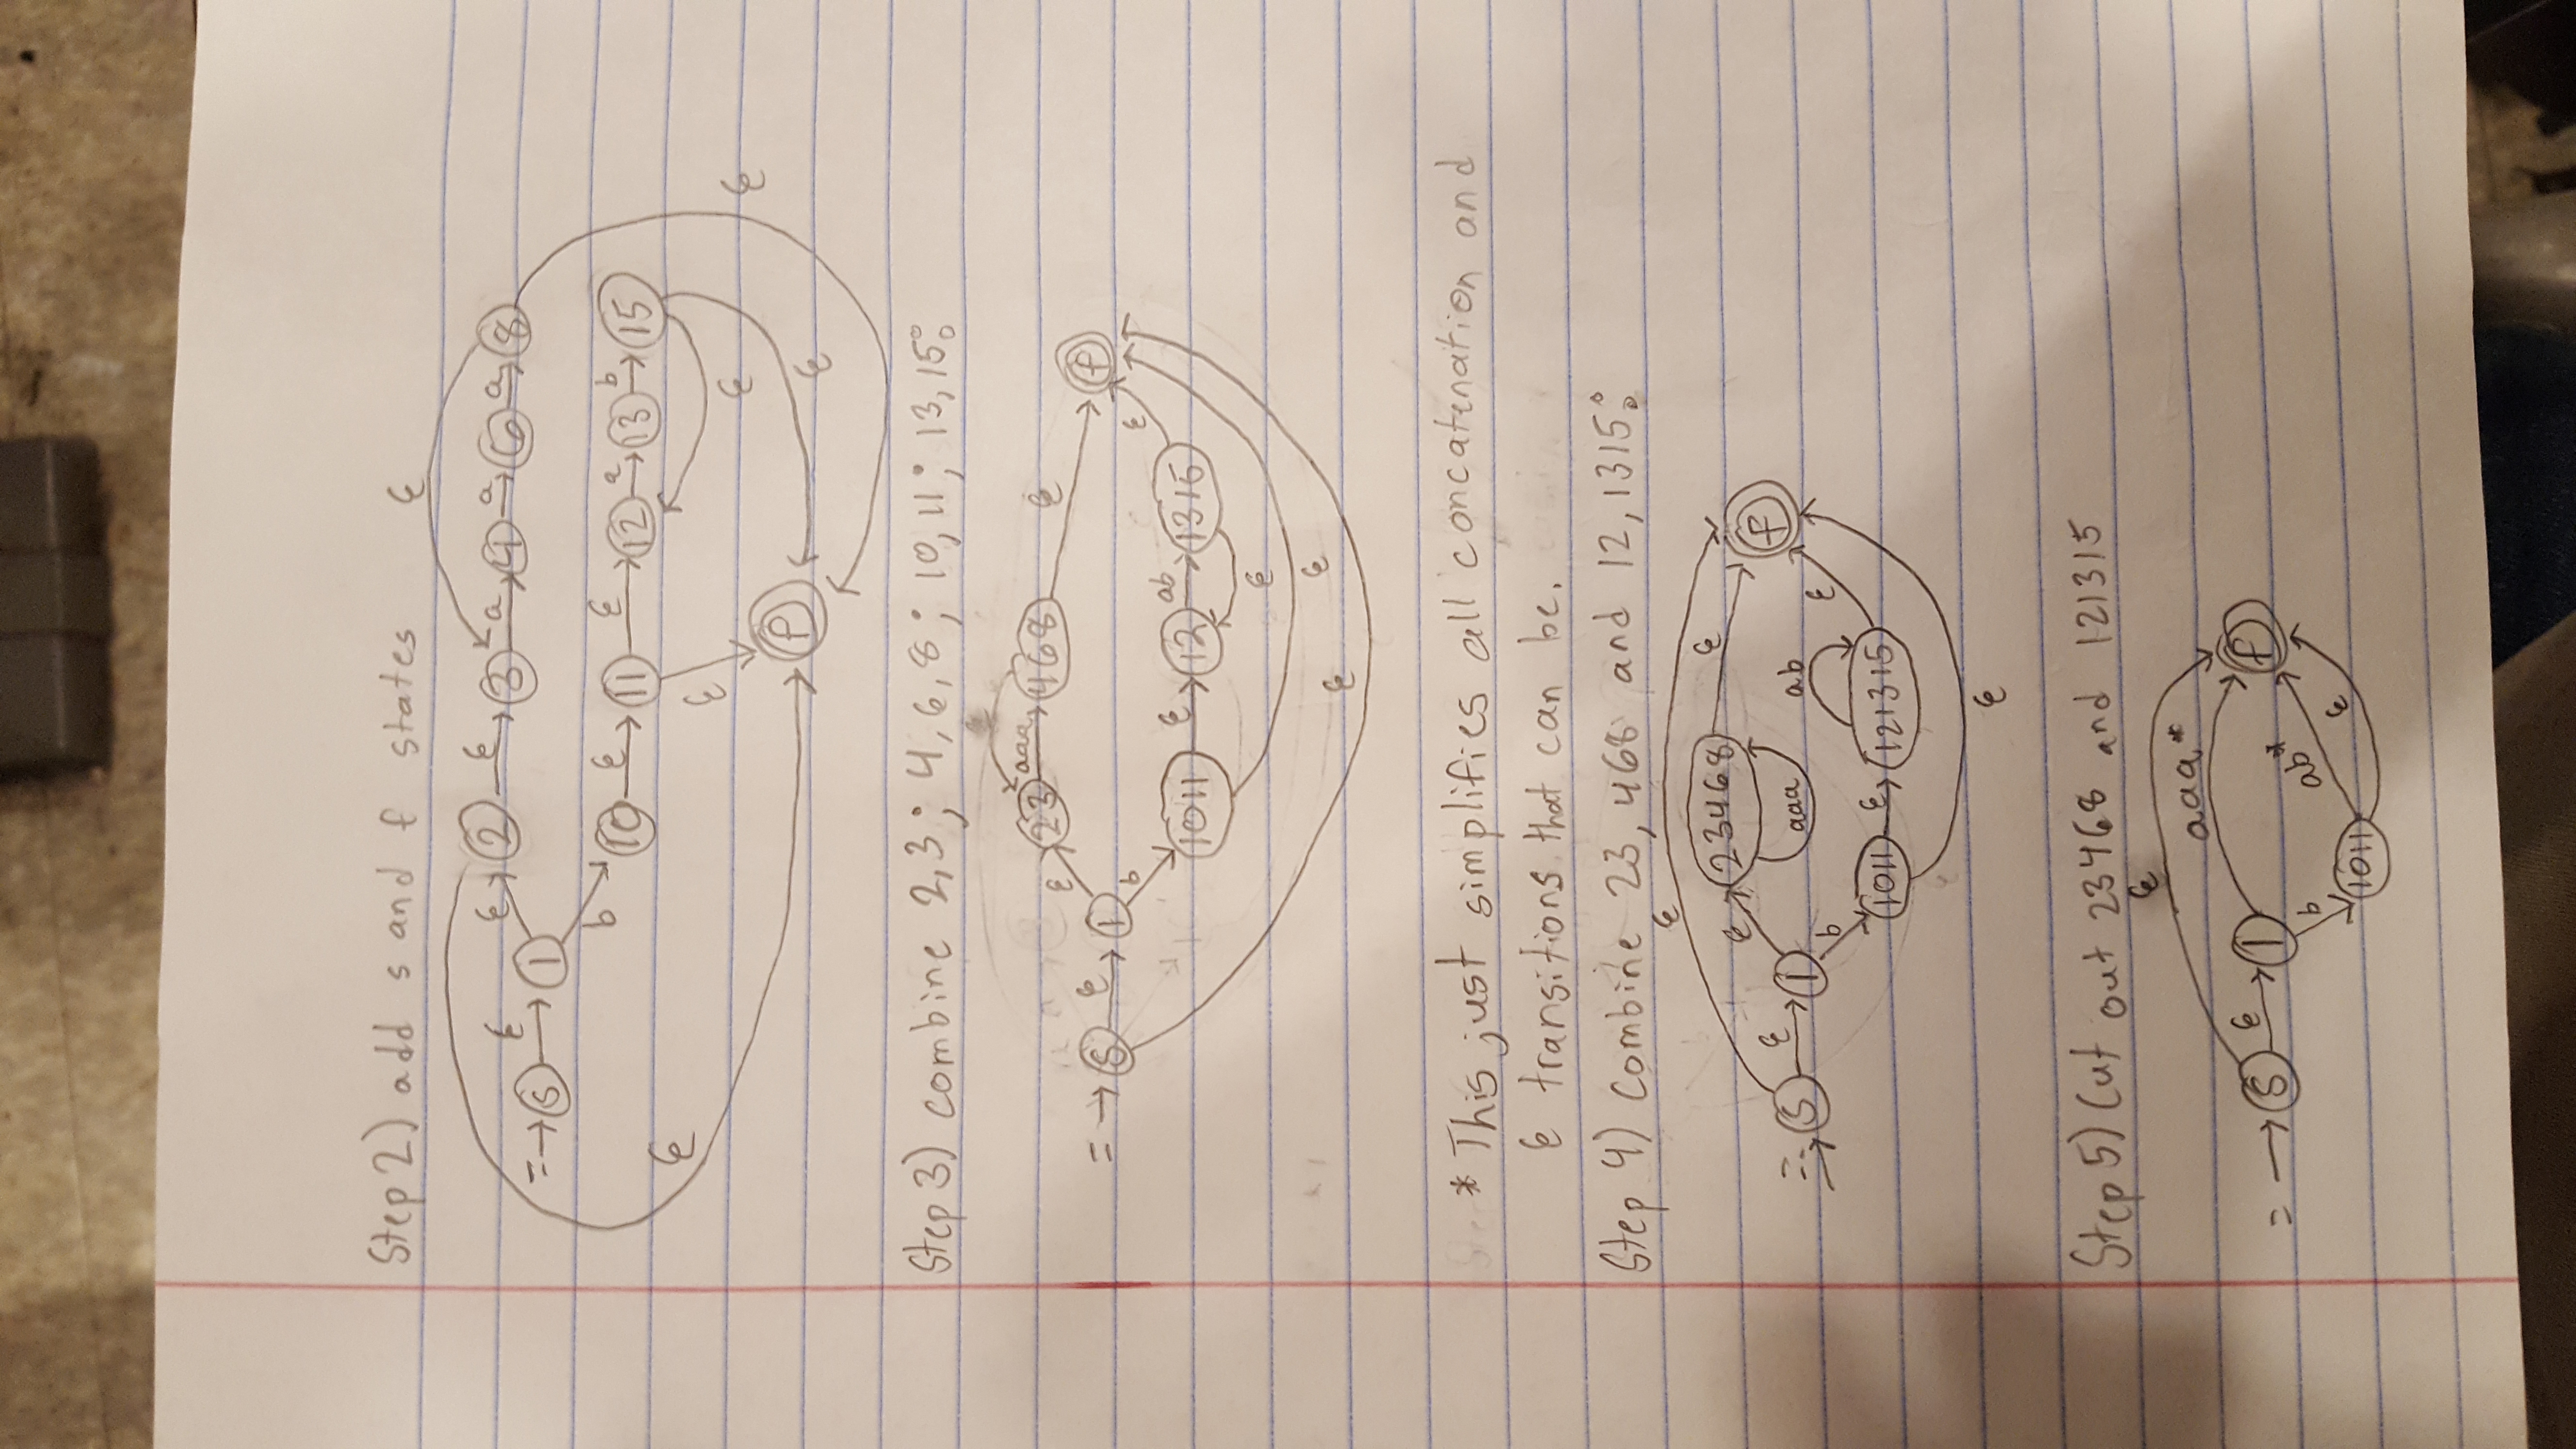 Step 2) add s and f states
ε
ε ε 2 ε 3 a 4 a 6 a 8
= → s 1
b 10 ε 11 ε 12 a 13 b 15
ε ε ε ε
f ε
Step 3) combine 2,3; 4,6,8; 10,11; 13,15:
23 aaa 468 ε
ε
= → s ε 1 f
b ε
1011 ε 12 ab 1315
ε
ε
ε
* This just simplifies all concatenation and
ε transitions that can be.
Step 4) combine 23, 468 and 12, 1315:
ε
ε 23468 ε
f
= → s ε 1 aaa ab
b ε
1011 ε 121315
ε
Step 5) Cut out 23468 and 121315
ε
aaa*
= → s ε 1 f
b ab*
1011 ε